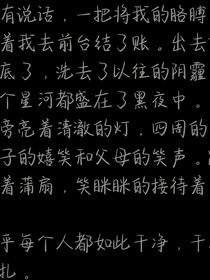 有说话，一把将我的胳膊
着我去前台结了账。出去
底了，洗去了以往的阴霾
个星河都盛在了黑夜中。
旁亮着清澈的灯，四周的
子的嬉笑和父母的笑声。
着蒲扇，笑眯眯的接待着
乎每个人都如此干净，干
扎。